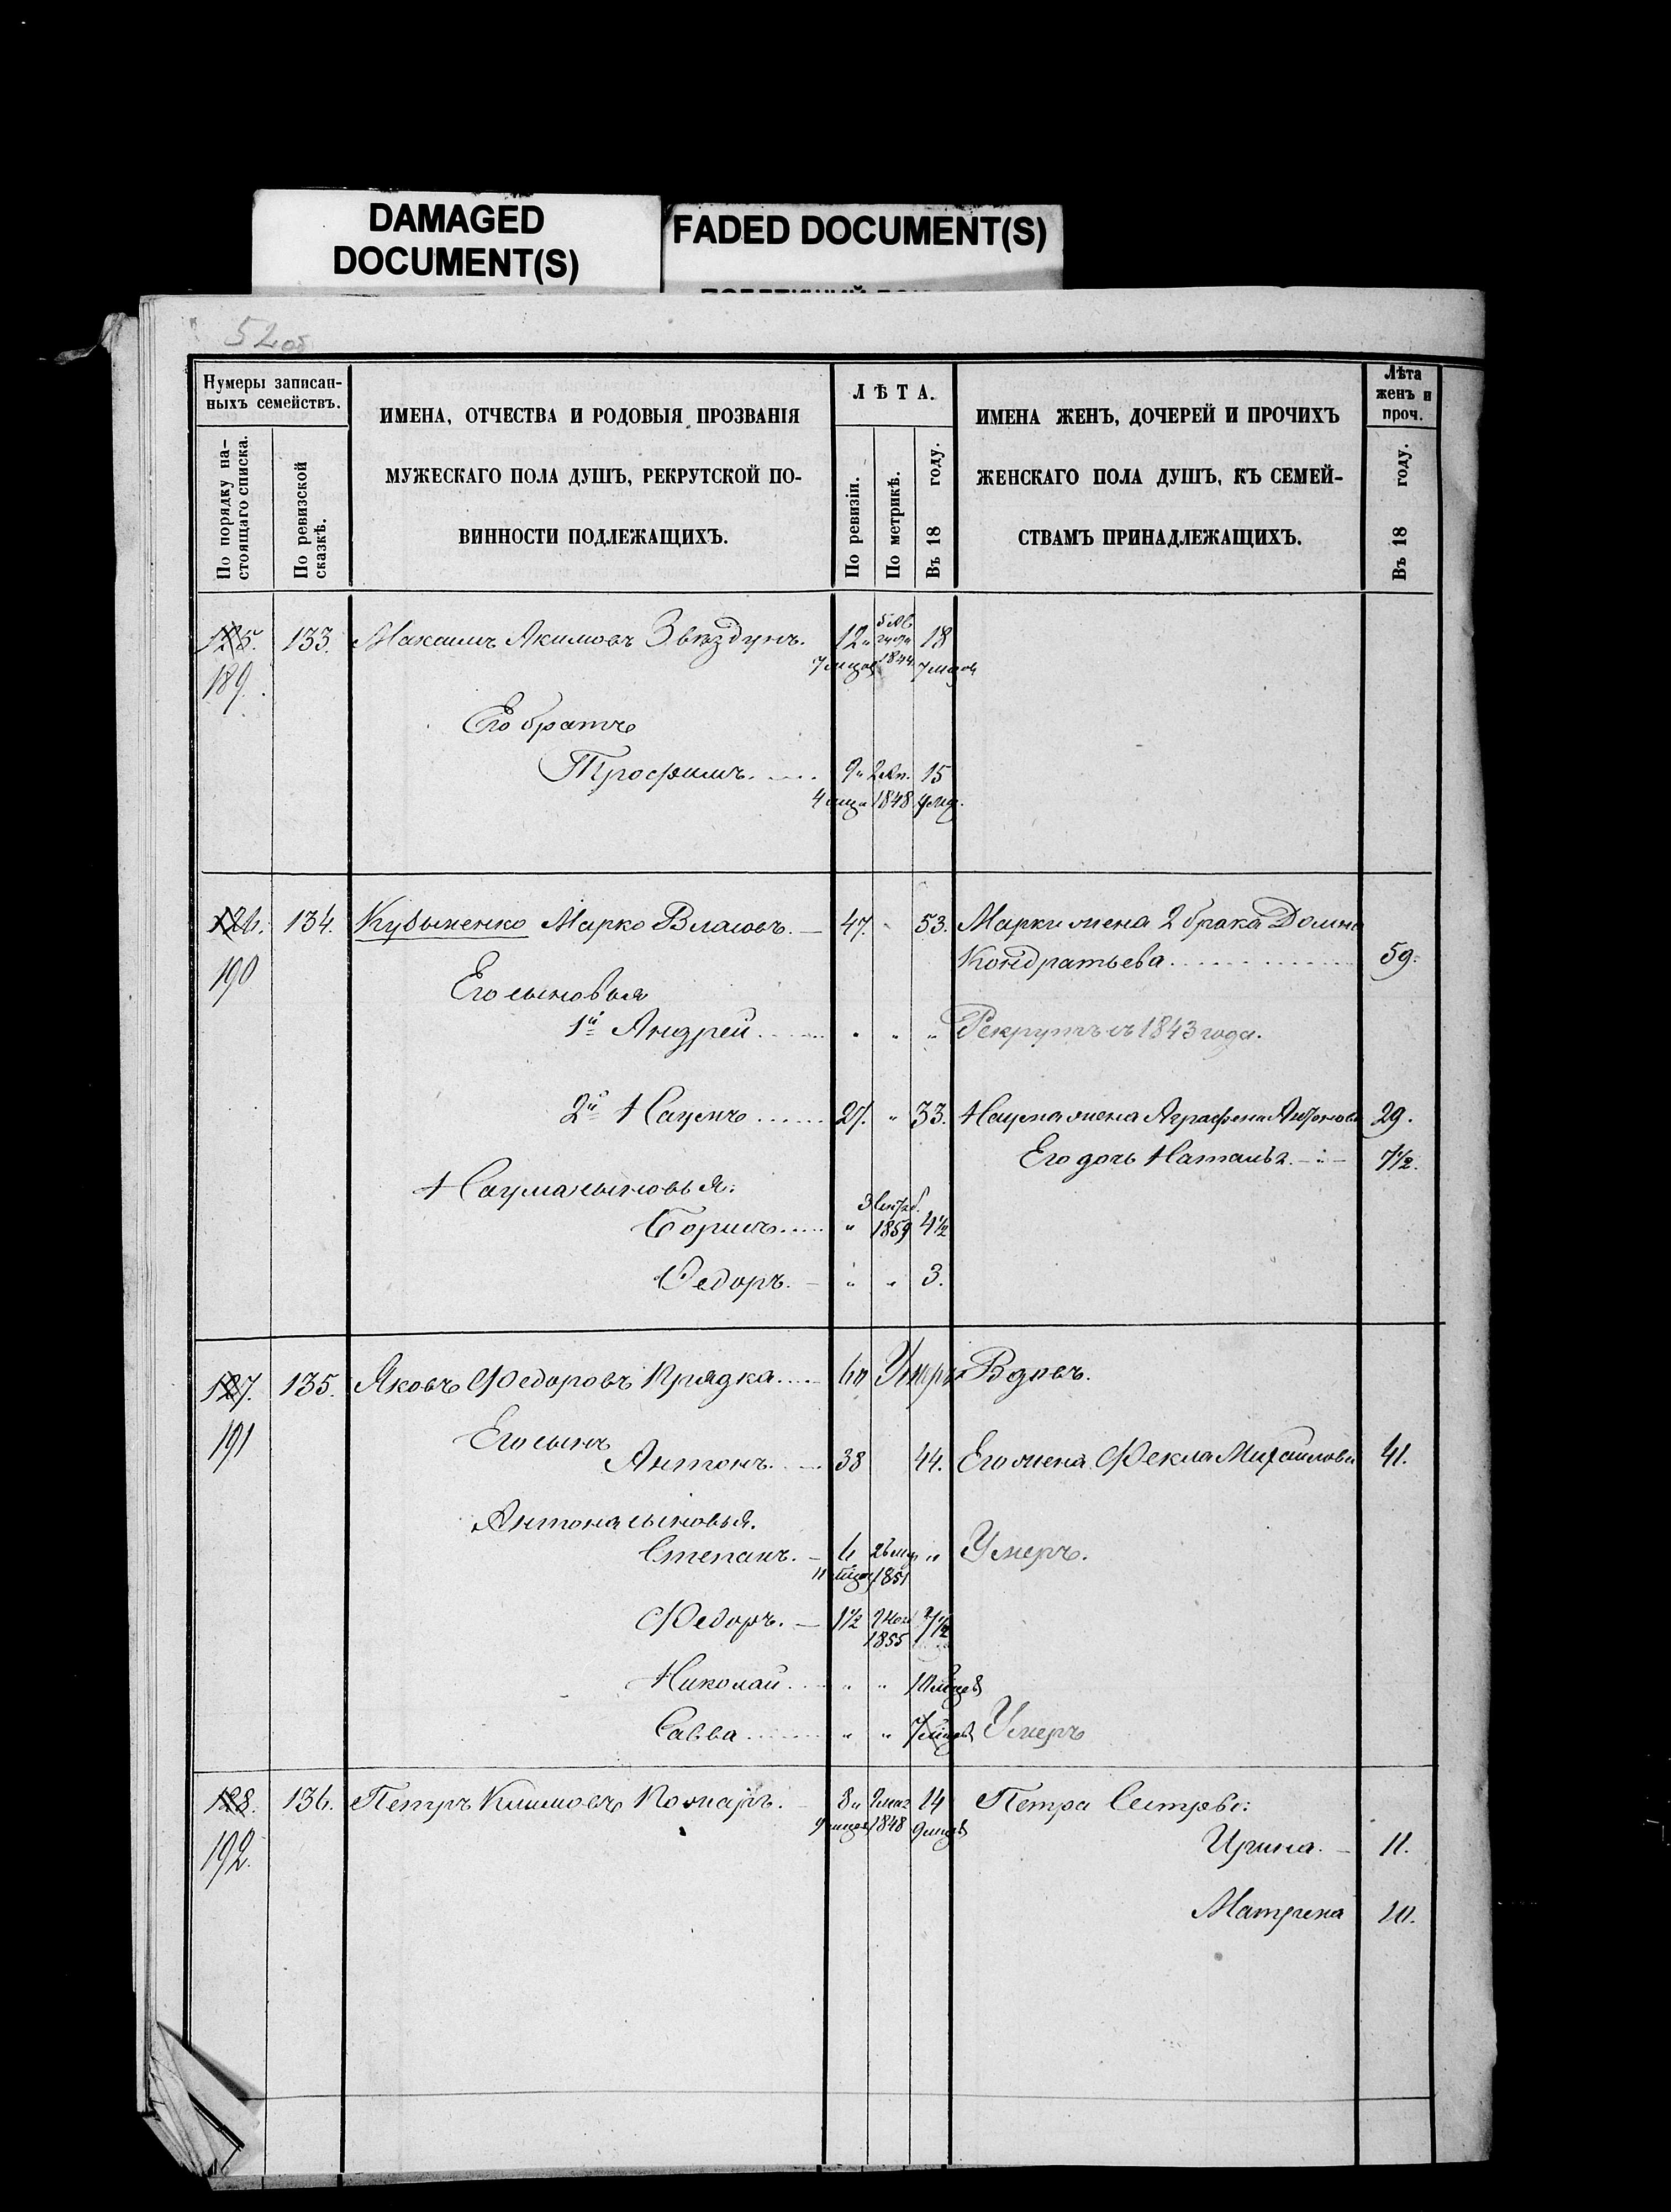 DAMAGED
DOCUMENT(S)
FADED DOCUMENT(S)
52об
Нумеры записан-
ныхъ семействъ.
По порядку на-
стоящаго списка.
По ревизской
сказкѣ.
ИМЕНА, ОТЧЕСТВА И РОДОВЫЯ ПРОЗВАНІЯ
МУЖЕСКАГО ПОЛА ДУШЪ, РЕКРУТСКОЙ ПО-
ВИННОСТИ ПОДЛЕЖАЩИХЪ.
ЛѢТА.
По ревизіи.
По метрикѣ.
Въ 18 году.
ИМЕНА ЖЕНЪ, ДОЧЕРЕЙ И ПРОЧИХЪ
ЖЕНСКАГО ПОЛА ДУШЪ, КЪ СЕМЕЙ-
СТВАМЪ ПРИНАДЛЕЖАЩИХЪ.
Лѣта
женъ и
проч.
Въ 18 году.
125. 133. Максимъ Акимовъ Звѣздунъ. 12 18
189. 7 мцов 1844 7 мцов
Его братъ
Трофимъ. 9 2 Ап. 15
4 мца 1848 4 мц.
126. 134. Кубыненко Марко Власовъ. 47. 53. Марки жена 2 брака Домна
190 Кондратьева 59.
Его сыновья
1й Андрей Рекрутъ съ 1843 года.
2й Наумъ 27. " 33. Наума жена Аграфена Антонова 29.
Его дочь Наталья. 7½.
Наума сыновья:
Борисъ " 1859 4½
Федоръ. " " 3.
127. 135. Яковъ Федоровъ Прядка 60 Умеръ Вдовъ.
191 Его сынъ
Антонъ. 38 44. Его жена Фекла Михайлова 41.
Антона сыновья.
Степанъ. 6 " Умеръ.
11 мцов 1851
Федоръ. 1½ 7½
1855
Николай. " " 10 мцевъ
Савва " " 7 мцевъ Умеръ
128. 136. Петръ Климовъ Комаръ. 8 14 Петра Сестры:
192. 9 мцов 1848 9 мцов Ирина. 11.
Матрена 10.